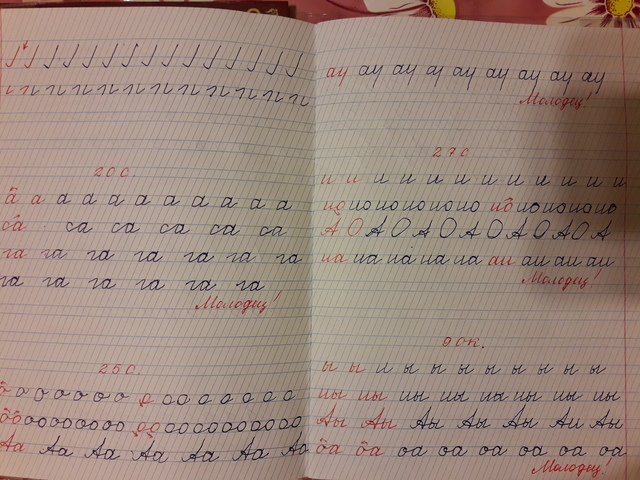 20 с.
а а а а а а а а а а а
са са са са са са
га га га га га га га
га га га га га га
Молодец!
25 с.
о о о о о о о о о о о о о о
оооооооооо оооооооооооо
Аа Аа Аа Аа Аа Аа Аа
ау ау ау ау ау ау ау ау ау
Молодец!
27 с
и и и и и и и и и и и и
ио ио ио ио ио ио ио ио ио ио ио
А О А О А О А О А О А О А
иа иа иа иа иа аи аи аи аи
Молодец!
9 ок.
ы ы ы ы ы ы ы ы ы ы ы
иы иы иы иы иы иы иы иы
Аы Аы Аы Аы Аы Аы Аы
оа оа оа оа оа оа оа оа
Молодец!